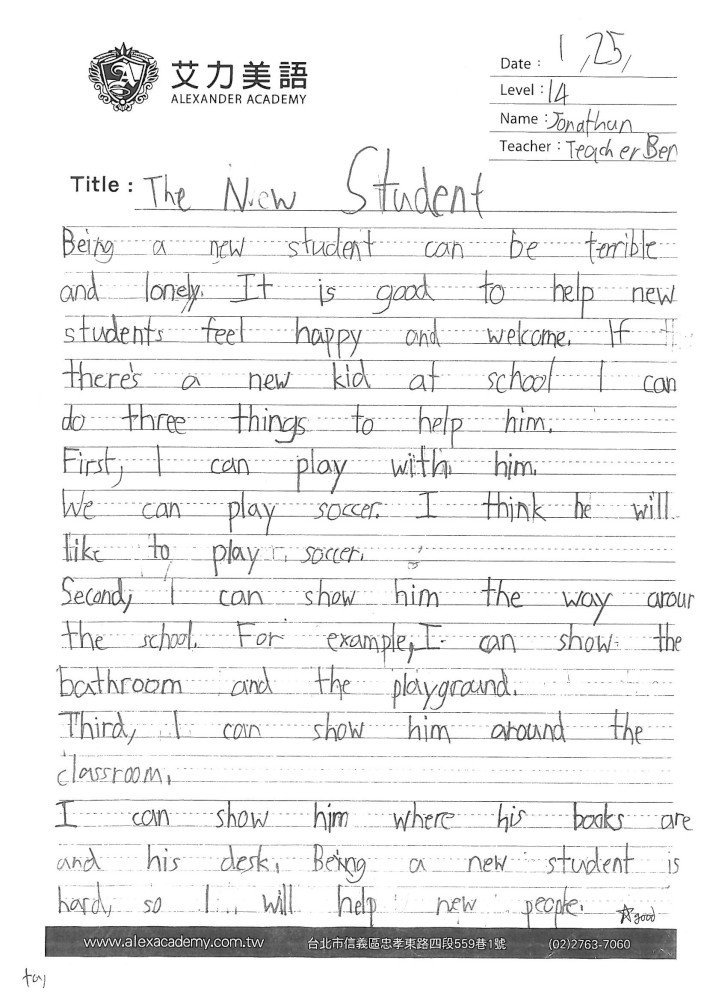 艾力美語
ALEXANDER ACADEMY
Date : 1,25,
Level : 14
Name : Jonathan
Teacher : Teacher Ben
Title : The New Student
Being a new student can be terrible
and lonely. It is good to help new
students feel happy and welcome. If
there's a new kid at school I can
do three things to help him.
First, I can play with him.
We can play soccer. I think he will
like to play soccer.
Second, I can show him the way aroun
the school. For example, I can show the
bathroom and the playground.
Third, I can show him around the
classroom.
I can show him where his books are
and his desk. Being a new student is
hard, so I will help new people. ☆good
www.alexacademy.com.tw 台北市信義區忠孝東路四段559巷1號 (02)2763-7060